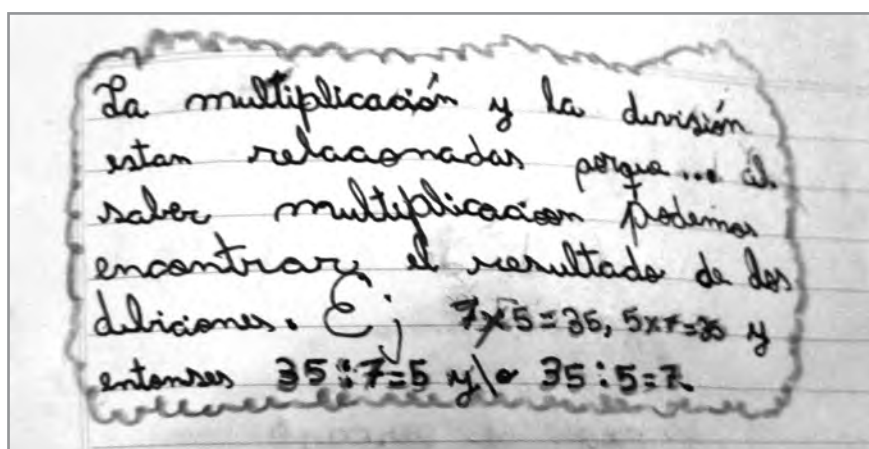 La multiplicación y la división
estan relacionadas porque... al
saber multiplicacion podemos
encontrar el resultado de dos
diviciones. Ej 7x5=35, 5x7=35 y
entonses 35:7=5 y\o 35:5=7